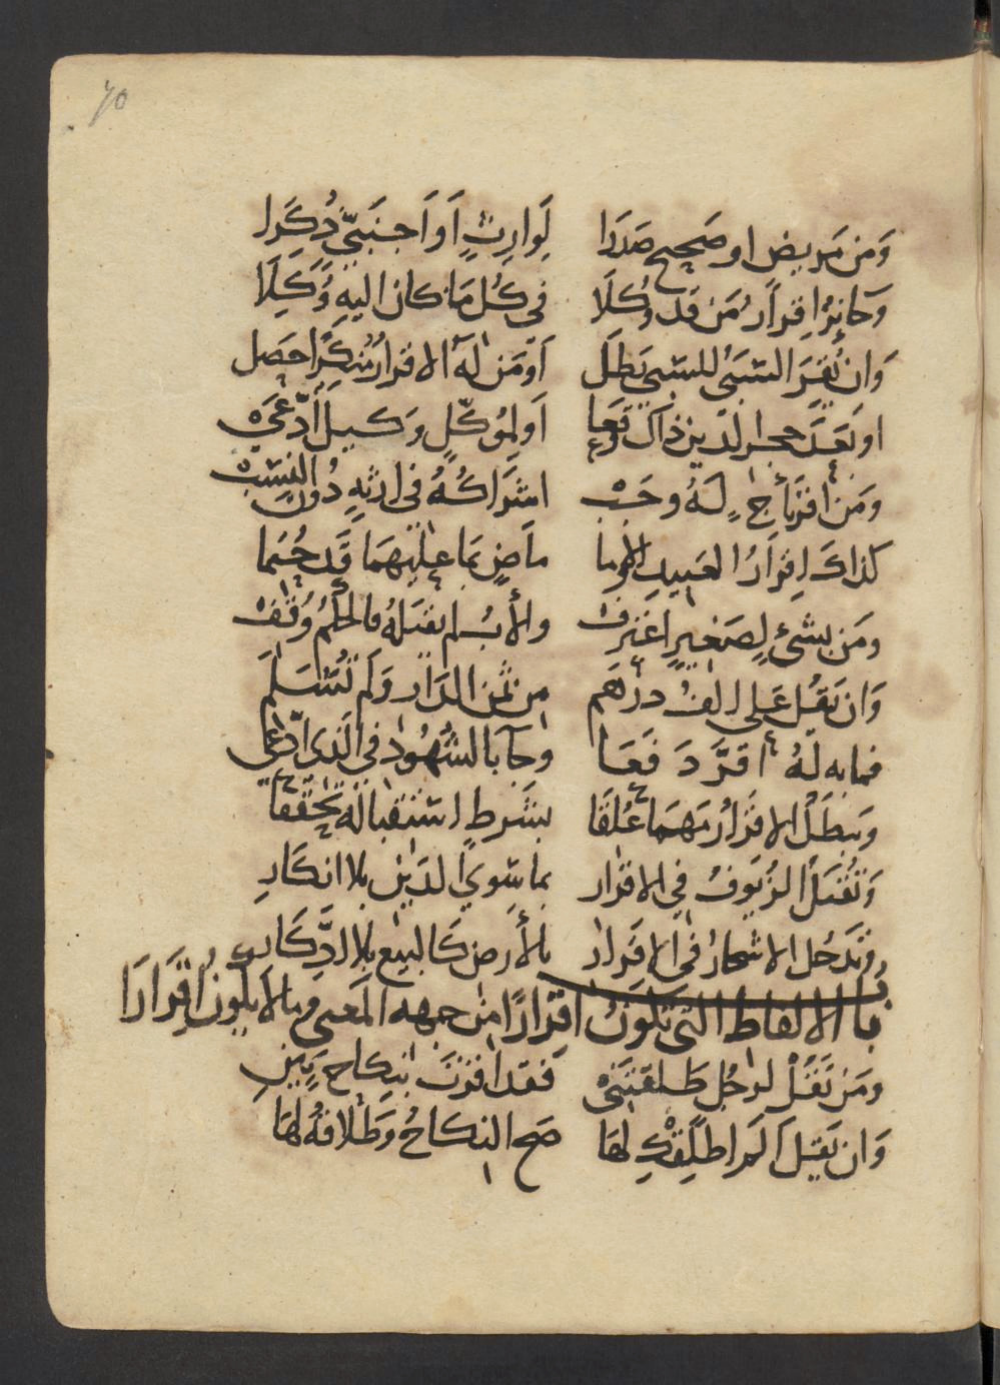 70
وَمَن مَريضٍ او صَحِيحٍ صَدَرَا لِوَارِثٍ اَو اَجنَبيٍّ ذُكِرَا
وَجائِزٌ اِقرَارُ مَن قَد وُكِّلَا في كُل مَا كان اليهِ وُكِّلَا
وَان يُقِرَّ الشيئُ للشيئ بَطَل اَو مَن لَهُ الاقرارُ مُنكِرًا حصَل
او بَعدَ حجر لدَينٍ ذاك وَقَعا اَو لِمُوَكِّلٍ وَكيلٌ ادّعىٰ
وَمَن اقرّ بأخٍ لَهُ وجَبْ اشتراكُهُ في ارثِهِ دُون النسَبْ
كذاكَ اِقرَارُ العَبيدِ والإما ماضٍ بمَا عليهِمَا قَد حُتِما
ومَن بشيئٍ لِصَغيرٍ اعترفْ والأبُ لم يقبَلهُ فالحُكمُ وُقِفْ
وَان يَقُل عَلي الفُ درهَم مِن ثمَن الدَار وَلَم تُسَلَّم
فما به لَهُ اقرَّ دَفَعَا وجَا بالشهُودِ في الَّذى ادّعىٰ
وَيبطَلُ الاقرَارُ مَهمَا عُلِّقَا بشَرطٍ استقبالُه تحقّقا
وَتُقبَلُ الزُيُوفُ في الاقرَارِ بمَا سِوي الدَينِ بلا انكَارِ
وتدخُل الاشجارُ في الاقرَارِ بالأرضِ كالبَيعِ بلا ادِّكَارِ
باب الالفاظ التي تكونُ اقرارًا من جهه المعنى وما لا يكونُ اقرَارَا
ومَن تَقُلْ لرَجُلٍ طَلِّقنِي فَقَد اقرّتْ بنِكاحٍ بَيِّنِ
وَان يَقُل اَلَم اطلِّقْكِ لهَا صَح النكاحُ وَطَلاقُهُ لهَا